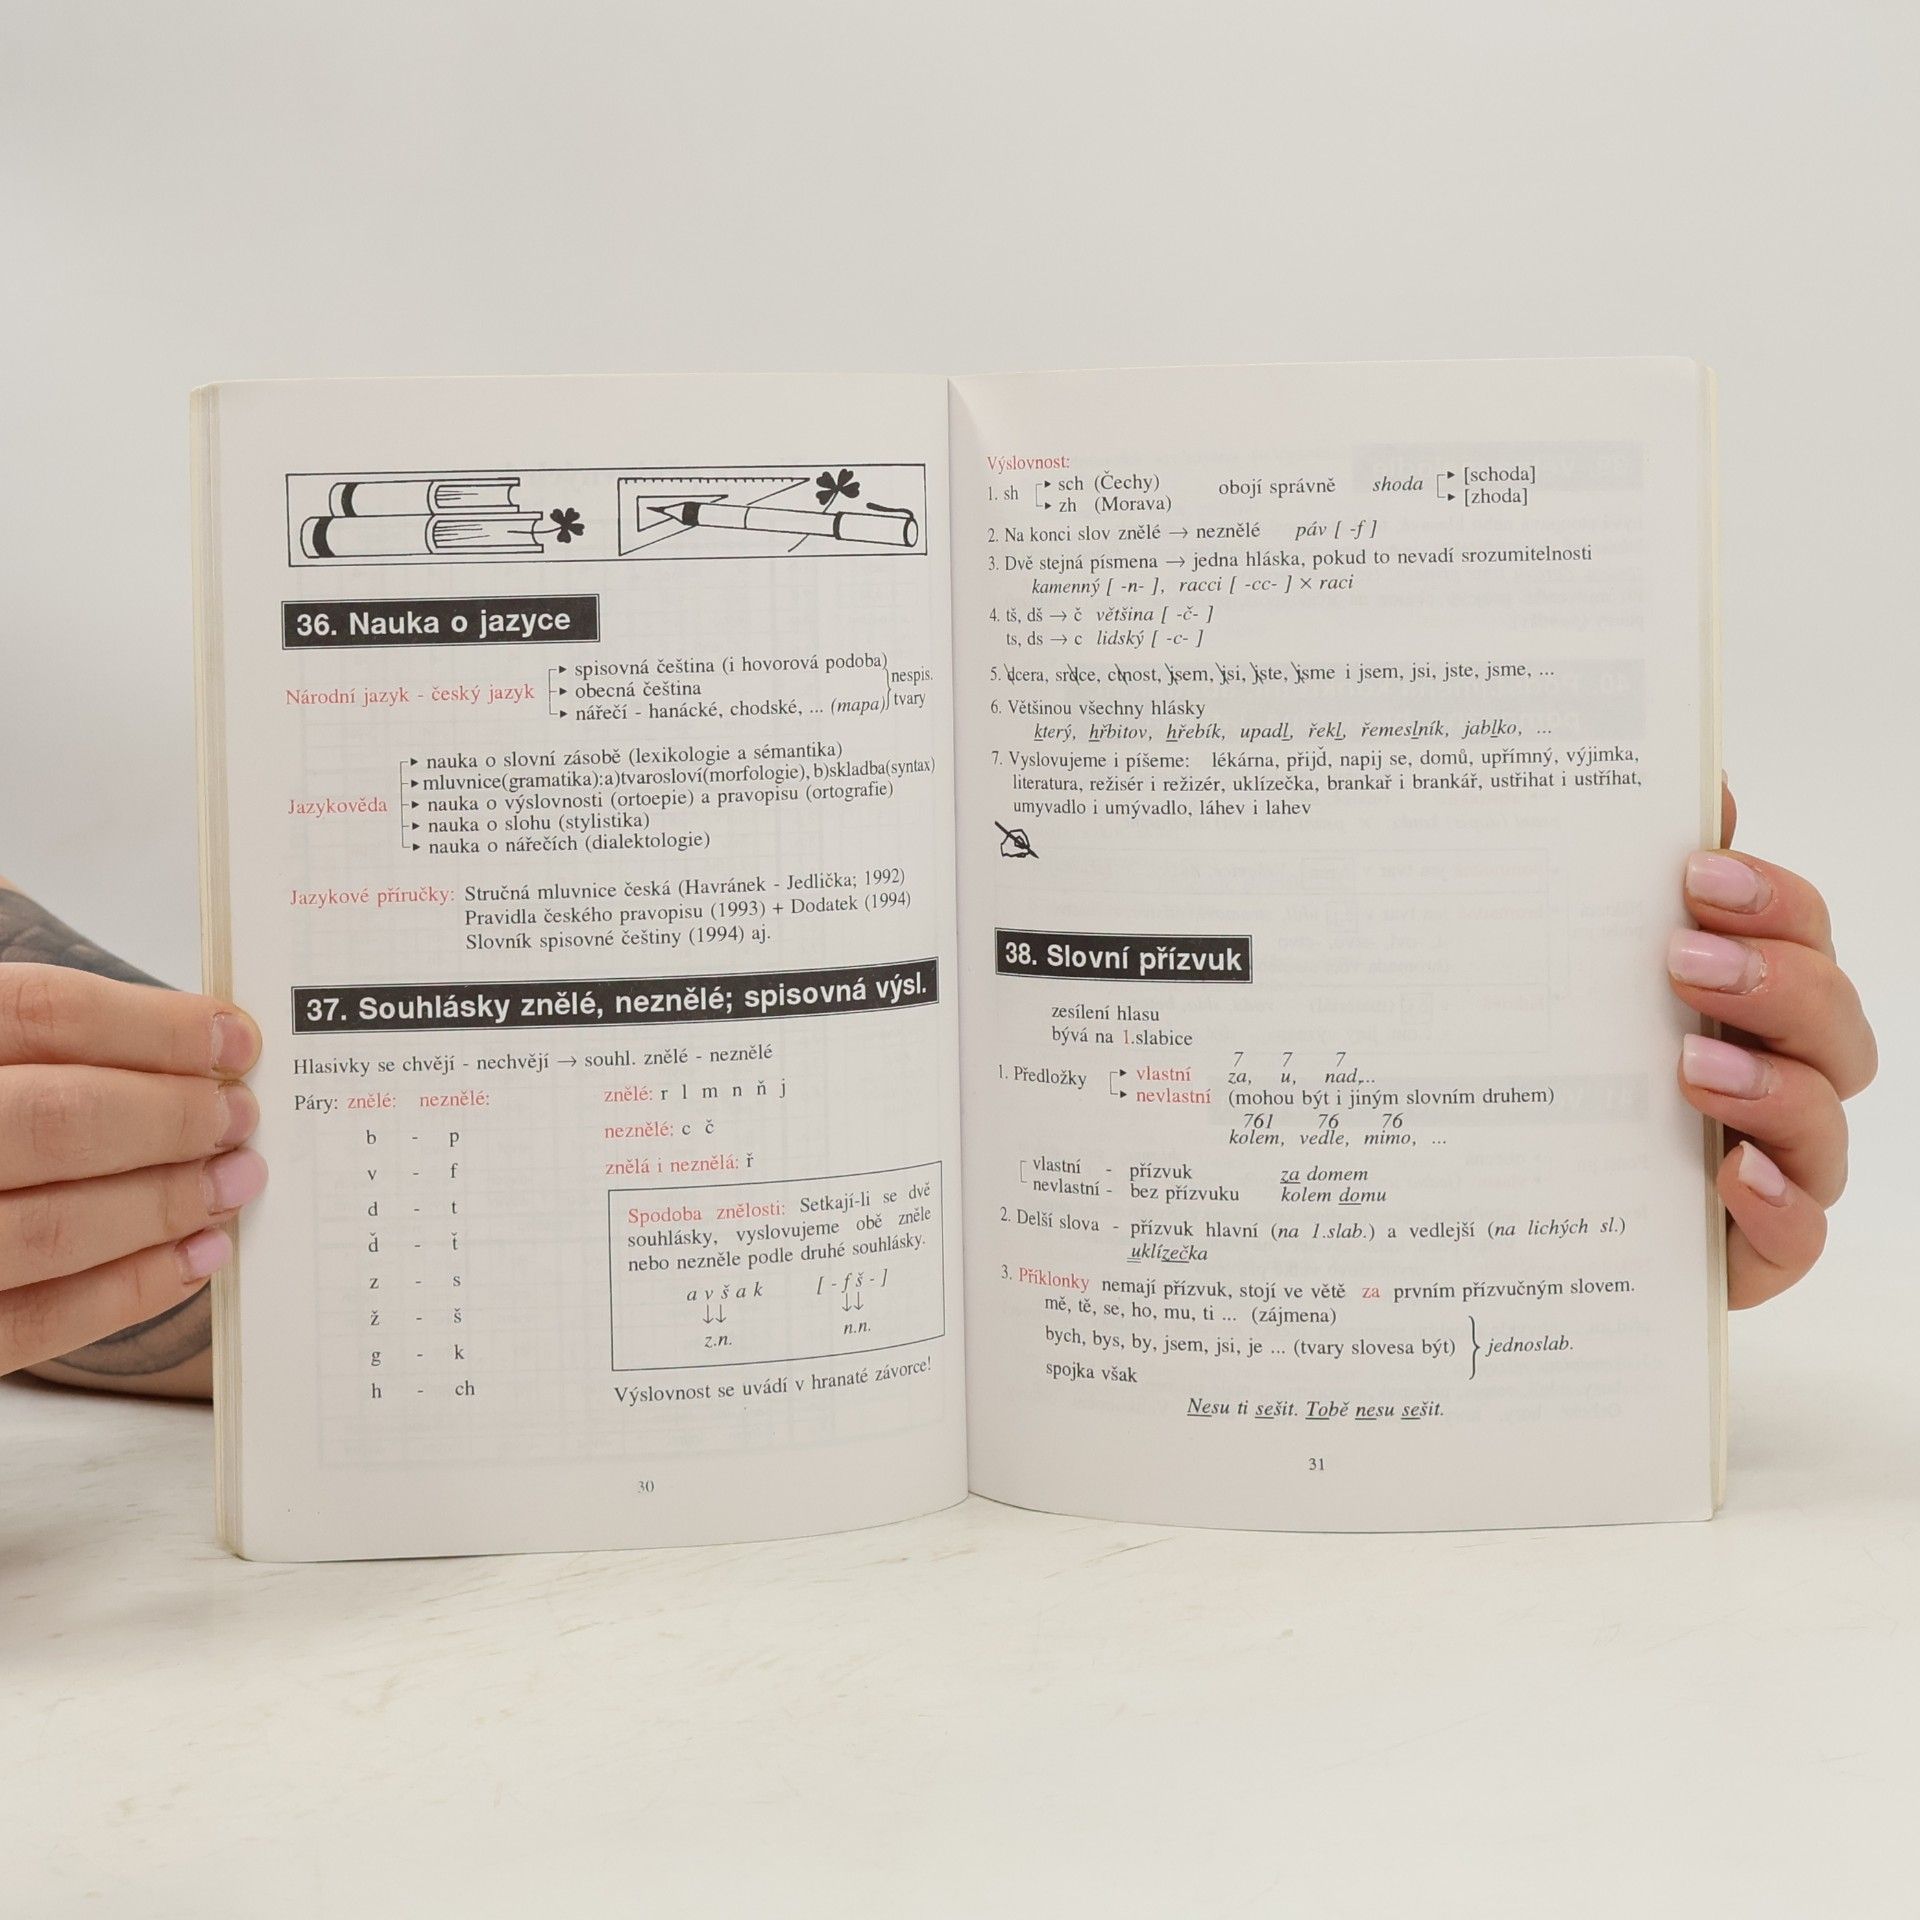 36. Nauka o jazyce
Národní jazyk - český jazyk
spisovná čeština (i hovorová podoba)
obecná čeština
nářečí - hanácké, chodské, ... (mapa)
nespis.
tvary
Jazykověda
nauka o slovní zásobě (lexikologie a sémantika)
mluvnice(gramatika):a)tvarosloví(morfologie), b)skladba(syntax)
nauka o výslovnosti (ortoepie) a pravopisu (ortografie)
nauka o slohu (stylistika)
nauka o nářečích (dialektologie)
Jazykové příručky: Stručná mluvnice česká (Havránek - Jedlička; 1992)
Pravidla českého pravopisu (1993) + Dodatek (1994)
Slovník spisovné češtiny (1994) aj.
37. Souhlásky znělé, neznělé; spisovná výsl.
Hlasivky se chvějí - nechvějí → souhl. znělé - neznělé
Páry: znělé: neznělé:
b - p
v - f
d - t
ď - ť
z - s
ž - š
g - k
h - ch
znělé: r l m n ň j
neznělé: c č
znělá i neznělá: ř
Spodoba znělosti: Setkají-li se dvě
souhlásky, vyslovujeme obě zněle
nebo nezněle podle druhé souhlásky.
a v š a k [ - f š - ]
↓↓ ↓↓
z.n. n.n.
Výslovnost se uvádí v hranaté závorce!
30
Výslovnost:
1. sh
sch (Čechy)
zh (Morava)
obojí správně
shoda
[schoda]
[zhoda]
2. Na konci slov znělé → neznělé páv [ -f ]
3. Dvě stejná písmena → jedna hláska, pokud to nevadí srozumitelnosti
kamenný [ -n- ], racci [ -cc- ] × raci
4. tš, dš → č většina [ -č- ]
ts, ds → c lidský [ -c- ]
5. dcera, srdce, ctnost, jsem, jsi, jste, jsme i jsem, jsi, jste, jsme, ...
6. Většinou všechny hlásky
který, hřbitov, hřebík, upadl, řekl, řemeslník, jablko, ...
7. Vyslovujeme i píšeme: lékárna, přijď, napij se, domů, upřímný, výjimka,
literatura, režisér i režizér, uklízečka, brankař i brankář, ustřihat i ustříhat,
umyvadlo i umývadlo, láhev i lahev
38. Slovní přízvuk
zesílení hlasu
bývá na 1.slabice
1. Předložky
7 7 7
vlastní za, u, nad,...
nevlastní (mohou být i jiným slovním druhem)
761 76 76
kolem, vedle, mimo, ...
vlastní - přízvuk za domem
nevlastní - bez přízvuku kolem domu
2. Delší slova - přízvuk hlavní (na 1.slab.) a vedlejší (na lichých sl.)
uklízečka
3. Příklonky nemají přízvuk, stojí ve větě za prvním přízvučným slovem.
mě, tě, se, ho, mu, ti ... (zájmena)
bych, bys, by, jsem, jsi, je ... (tvary slovesa být)
spojka však
jednoslab.
Nesu ti sešit. Tobě nesu sešit.
31